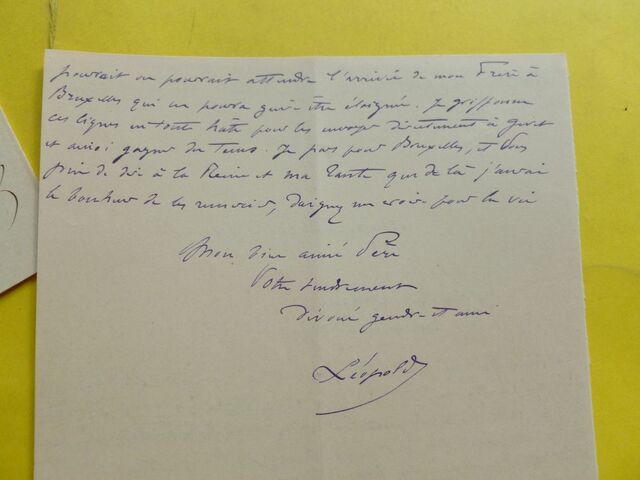 pourrait on pourrait attendre l'arrivée de mon Frère à
Bruxelles qui ne pourra guère être éloignée. Je griffonne
ces lignes en toute hâte pour les envoyer directement à
et ainsi gagner du tems. Je pars pour Bruxelles, et Vous
prie de dire à la Reine et ma Tante que de là j'aurai
le bonheur de les remercier, Daignez me croire pour la vie
Mon bien aimé Père
Votre tendrement
Dévoué gendre et ami
Léopold